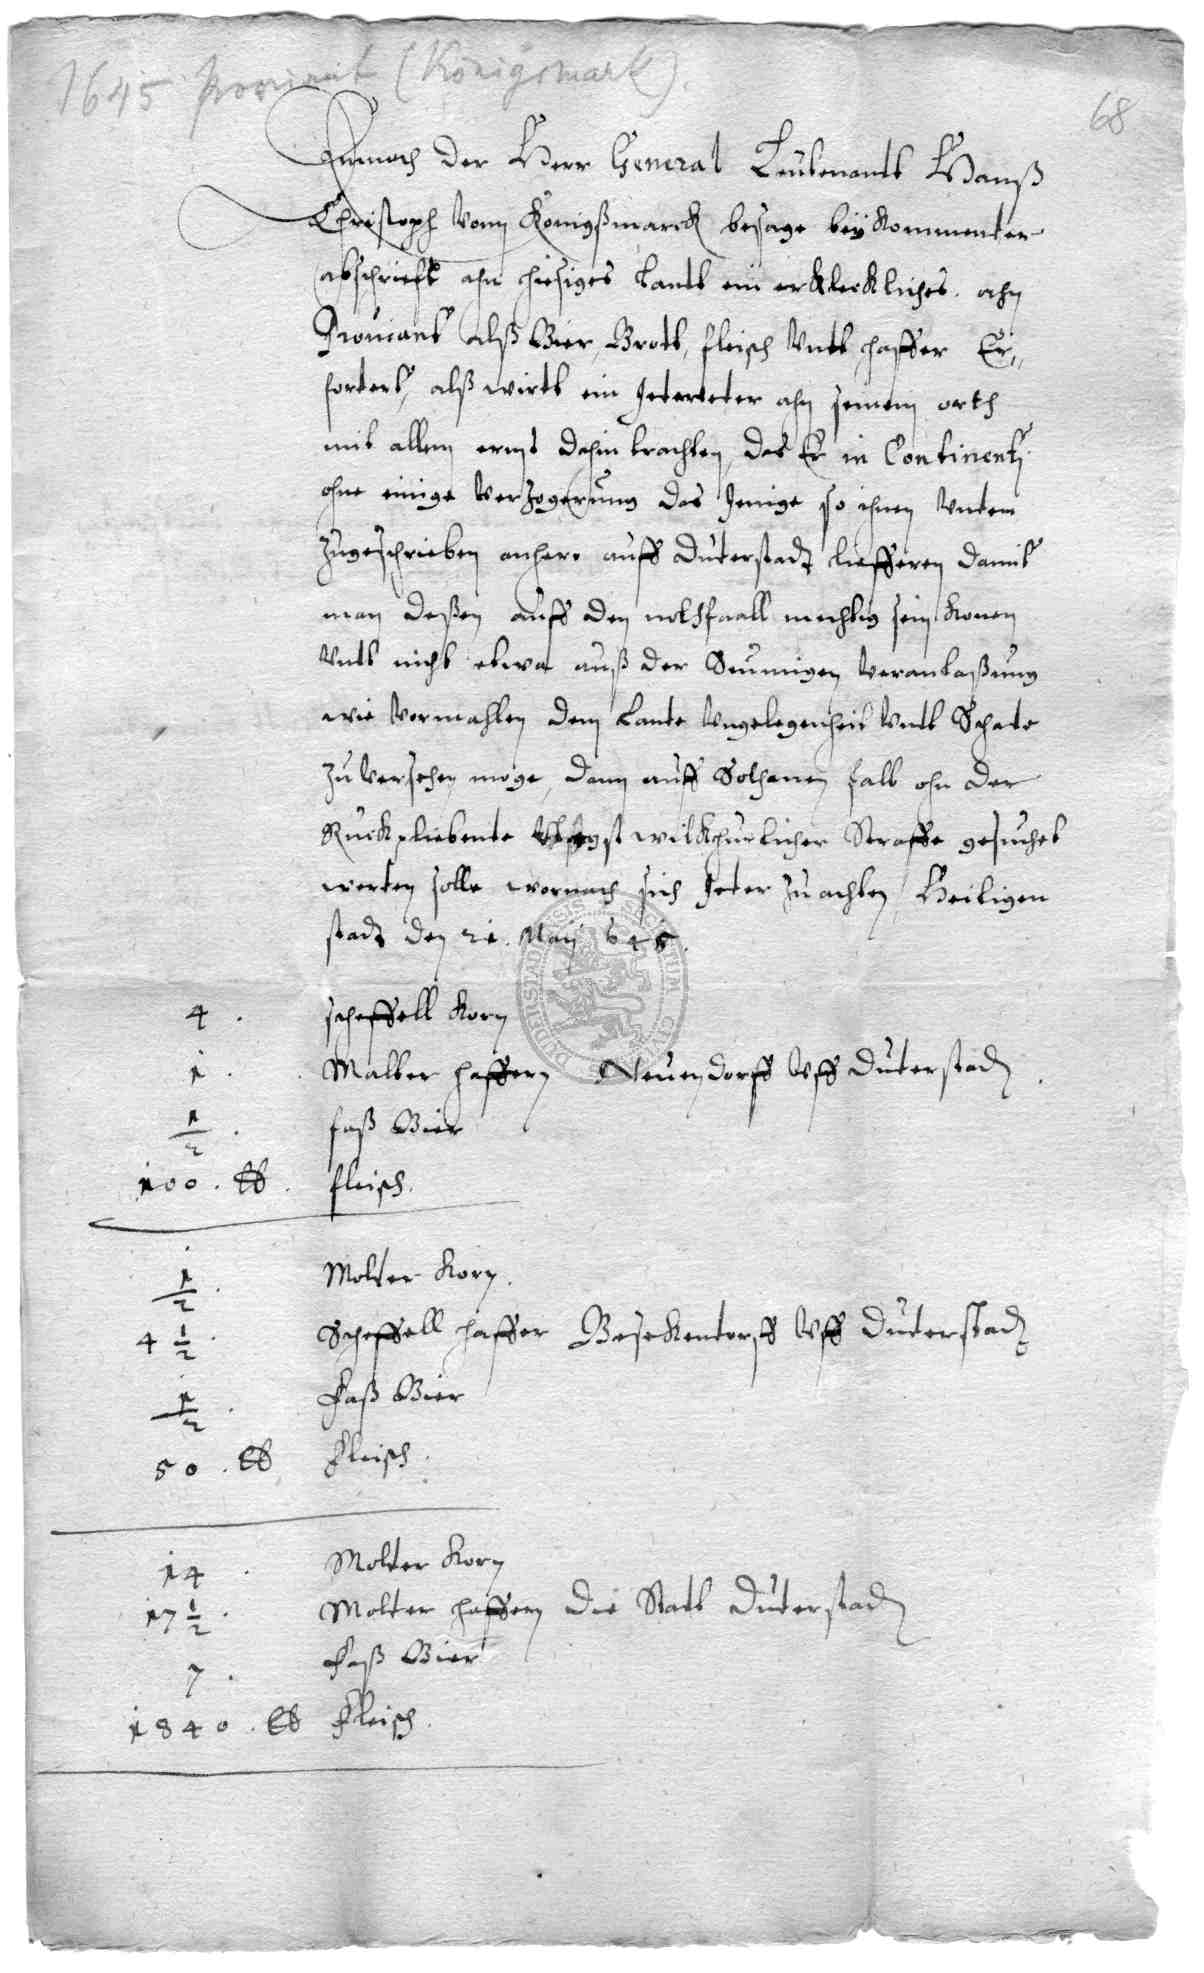 1645 Proviant (Königsmark).
68
Demnach der Herr General Leutenantt Hanß
Christoph vonn Konigßmarck besage beÿ kommenter
abschriefft ahn hiesiges Lantt ein erkleckliches ahn
Proviant alß Bier, Brott, fleisch vntt haffer Er„
fortert, alß wirtt ein Jetweter ahn seinem orth
mit allem ernst dahin trachten, das Er in Continenti
ohne einige verzogerung das Jenige so ihnen vnten
zugeschrieben anhero auff Duterstadt lieffern damit
man deßen auff den nothfaall mechtig sein konen
vntt nicht etwa auß der Seumigen veranlaßung
wie vormahlen dem Lante vngelegenheit vntt Schate
zu versehen moge, dann auff Solchenen fall ahn der
Ruckpliebente wilkhurlicher Straffe gesuchet
werten solle wornach sich Jeter zu achten, Heiligen
stadt den 21. Maÿ 645.
4. scheffell Korn
1. Malter haffern Neuendorff vff Duterstadt.
1/2. faß Bier
100. lb. fleisch.
1/2. Molter Korn.
4 1/2. Scheffell haffer Besekentorff vff Duterstadt
1/2. Faß Bier
50. lb Fleisch.
14. Molter Korn
17 1/2. Molter haffern die Statt Duterstadt
7. Faß Bier
1840. lb Fleisch.